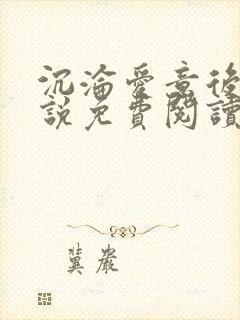 沉淪愛意後
說免費閱讀
冀嚴